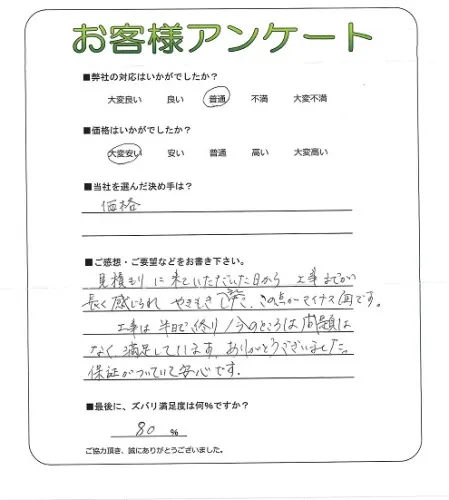 お客様アンケート
■弊社の対応はいかがでしたか?
大変良い 良い 普通 不満 大変不満
■価格はいかがでしたか?
大変安い 安い 普通 高い 大変高い
■当社を選んだ決め手は?
価格
■ご感想・ご要望などをお書き下さい。
見積もりに来ていただいた日から 工事までが
長く感じられ やきもき この点がマイナス面です。
工事は半日で終り/今のところは問題は
なく満足しています。ありがとうございました。
保証がついていて安心です.
■最後に、ズバリ満足度は何%ですか?
80 %
ご協力頂き、誠にありがとうございました。